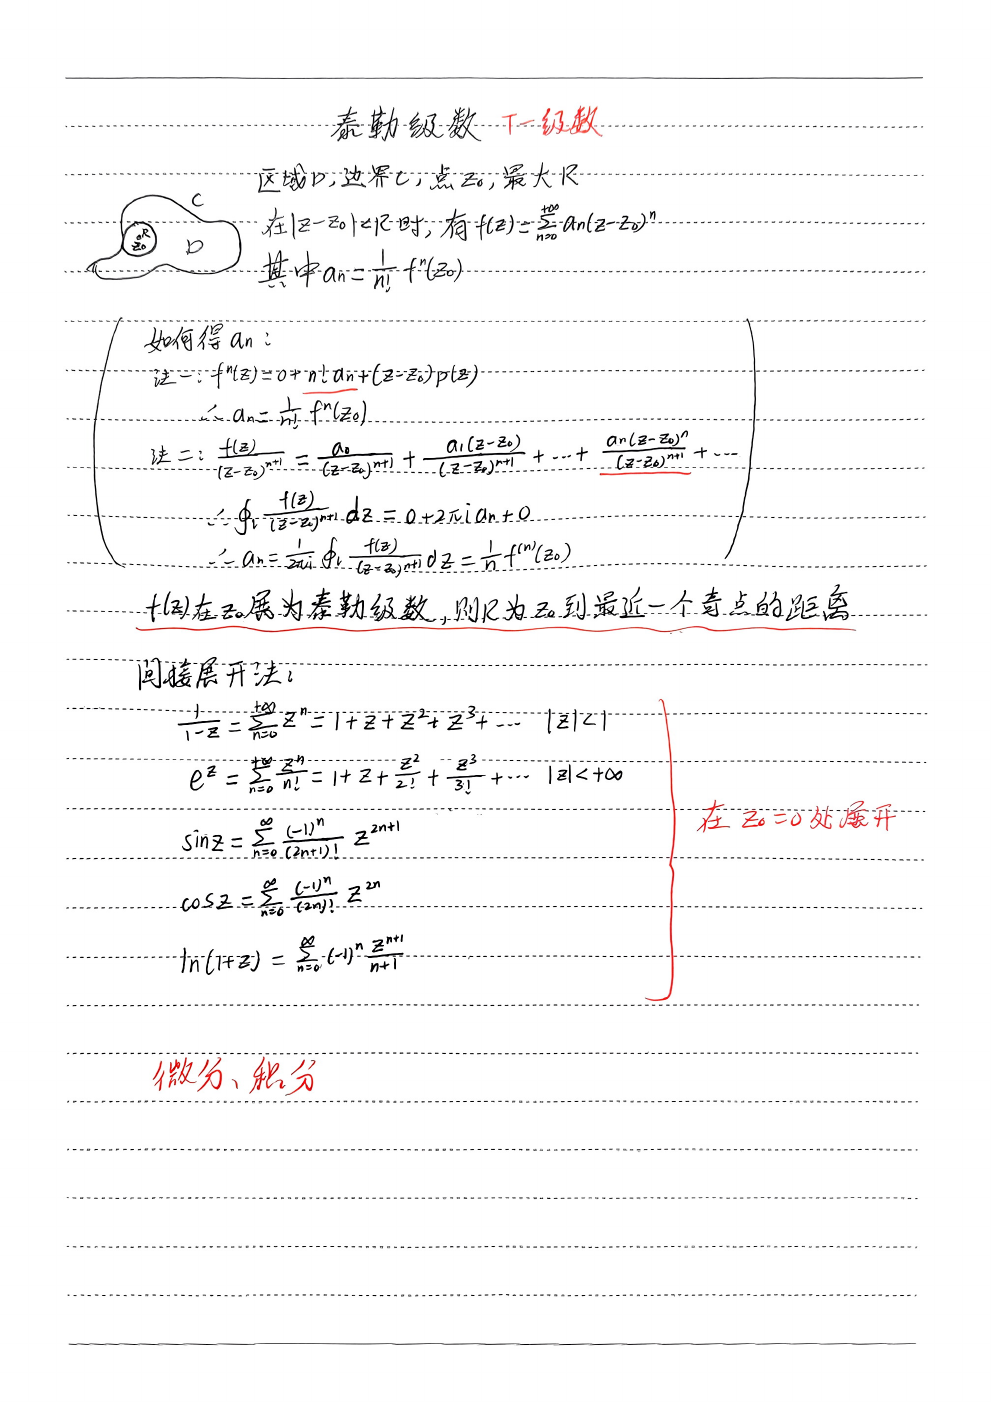 泰勒级数 T-级数
区域D,边界C,点z₀,最大R
在|z-z₀|<R时,有f(z)=∑_{n=0}^{+∞}an(z-z₀)^n
其中an=\frac{1}{n!}f^n(z₀)
C
R
z₀
D
如何得an:
法一:f^n(z)=0+n!an+(z-z₀)p(z)
∴an=\frac{1}{n!}f^n(z₀)
法二:\frac{f(z)}{(z-z₀)^{n+1}}=\frac{a₀}{(z-z₀)^{n+1}}+\frac{a₁(z-z₀)}{(z-z₀)^{n+1}}+…+\frac{an(z-z₀)^n}{(z-z₀)^{n+1}}+…
∴∮_l\frac{f(z)}{(z-z₀)^{n+1}}dz=0+2πian+0
∴an=\frac{1}{2πi}∮_l\frac{f(z)}{(z-z₀)^{n+1}}dz=\frac{1}{n}f^{(n)}(z₀)
f(z)在z₀展为泰勒级数,则R为z₀到最近一个奇点的距离
间接展开法:
\frac{1}{1-z}=∑_{n=0}^{+∞}z^n=1+z+z²+z³+… |z|<1
e^z=∑_{n=0}^{+∞}\frac{z^n}{n!}=1+z+\frac{z²}{2!}+\frac{z³}{3!}+… |z|<+∞
sinz=∑_{n=0}^{∞}\frac{(-1)^n}{(2n+1)!}z^{2n+1}
cosz=∑_{n=0}^{∞}\frac{(-1)^n}{(2n)!}z^{2n}
ln(1+z)=∑_{n=0}^{∞}(-1)^n\frac{z^{n+1}}{n+1}
在z₀=0处展开
微分、积分